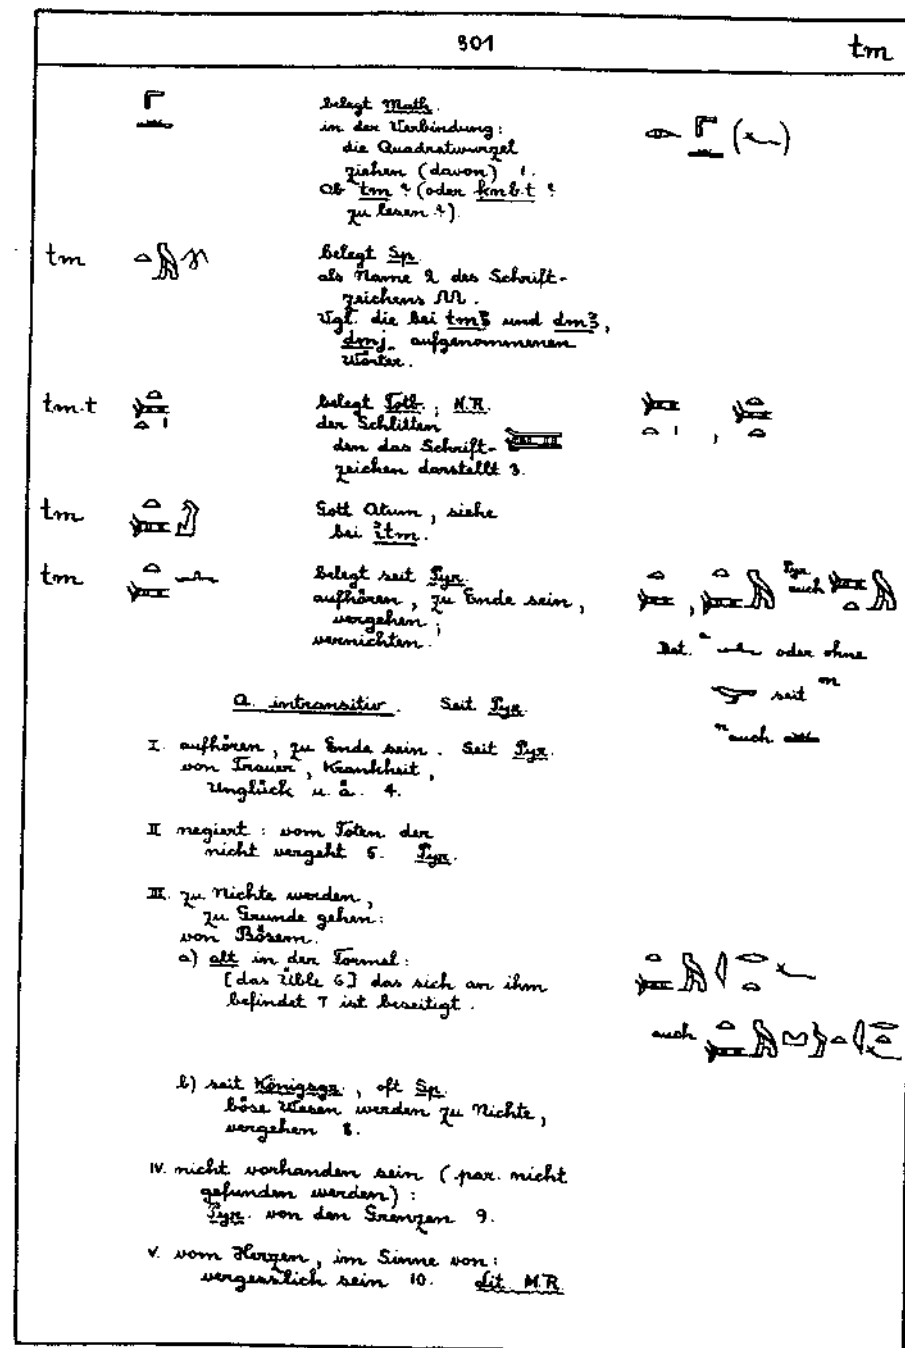 301
tm
belegt Math.
in der Verbindung:
die Quadratwurzel
ziehen (davon) 1.
Ob tm ? (oder ḳnb.t ?
zu lesen ?).
tm
belegt Sp.
als Name 2 des Schrift-
zeichens
Vgl. die bei tmꜣ und dmꜣ,
dmj aufgenommenen
Wörter.
tm.t
belegt Totb., N.R.
der Schlitten
den das Schrift-
zeichen darstellt 3.
tm
Gott Atum, siehe
bei ꞽtm.
tm
belegt seit Pyr.
aufhören, zu Ende sein,
vergehen;
vernichten.
Pyr.
auch
Det. a oder ohne
seit m
n auch
A. intransitiv. Seit Pyr.
I. aufhören, zu Ende sein. Seit Pyr.
von Trauer, Krankheit,
Unglück u. ä. 4.
II negiert: vom Toten der
nicht vergeht 5. Pyr.
III. zu Nichte werden,
zu Grunde gehen:
von Bösem.
a) alt in der Formel:
[das Üble 6] das sich an ihm
befindet 7 ist beseitigt.
auch
b) seit Königsgr., oft Sp.
böse Wesen werden zu Nichte,
vergehen 8.
IV. nicht vorhanden sein (par. nicht
gefunden werden):
Pyr. von den Grenzen 9.
V. vom Herzen, im Sinne von:
vergesslich sein 10. Lit. M.R.